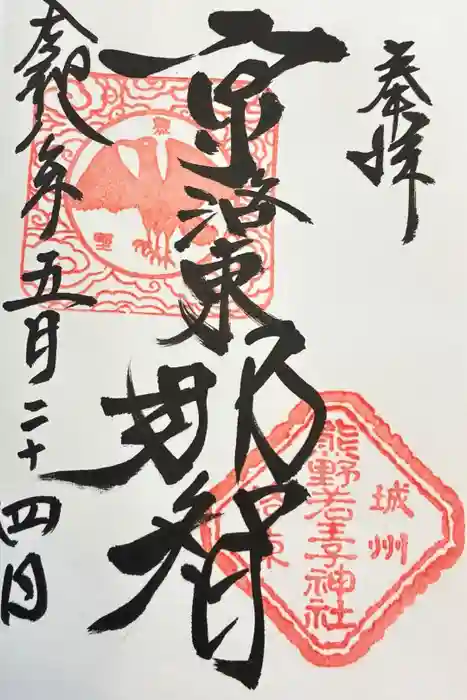 奉拝
京洛東
那智
令和八年五月二十四日
城州
熊野若王子神社
洛東